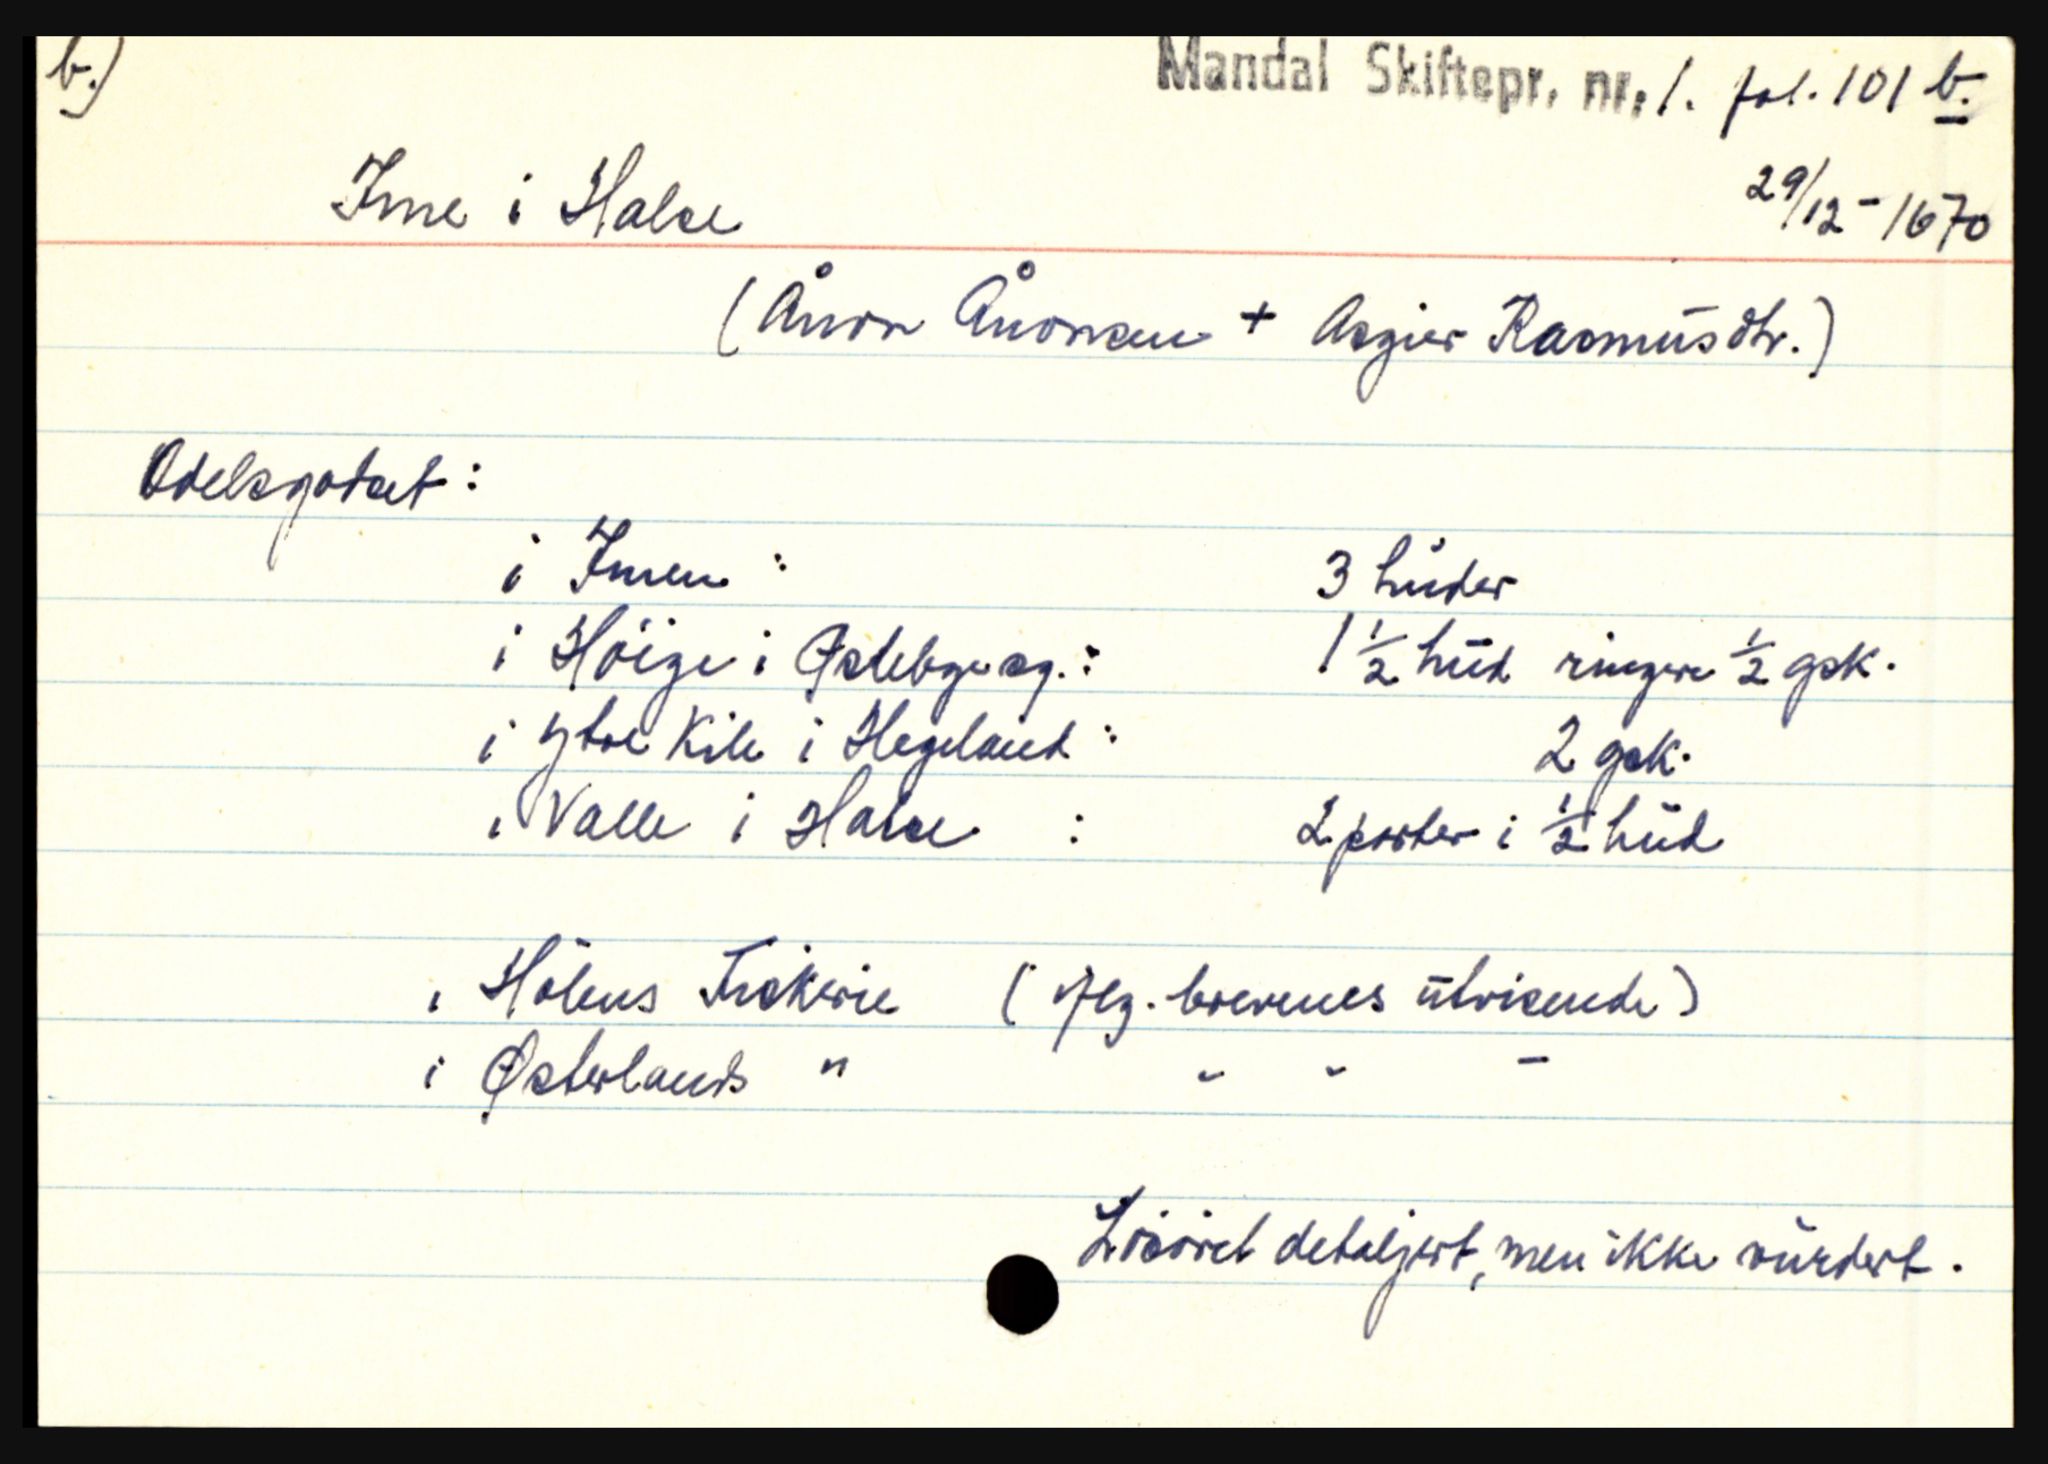 b.)
Mandal Skiftepr. nr. 1. fol. 101 b.
Ime i Halse
29/12 - 1670
(Ånon Ånonsen + Asgier Rasmusdtr.)
Odelsgodset:
i Imen : 3 huder
i Höige i Østebygesg.: 1 1/2 hud ringere 1/2 gsk.
i Ytre Kile i Hegeland : 2 gsk.
i Valle i Halse : 2 parter i 1/2 hud
i Hölens Fiskerie ( iflg. brevenes utvisende )
i Østerlands " - - -
Lösöret detaljert, men ikke vurdert.